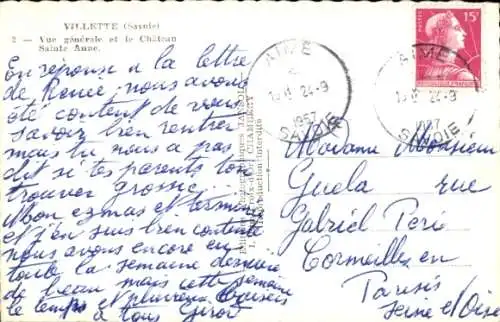 VILLETTE (Savoie)
2 — Vue générale et le Château
Sainte Anne.
En réponse a la lettre
de Renée nous avons
été content de vous
savoir bien rentrer
mais tu nous a pas
dit si tes parents ton
trouver grossie
Mon ezmas et terminé
et j'en suis bien contente
nous avons encore eu
toute la semaine dernière
de beau mais cette semaine
le temps et pluvieux Baisers
a tous
AIME
24-9
1957
SAVOIE
AIME
24-9
SAVOIE
15F
Madame Monsieur
Guela rue
Gabriel Peri
Cormeilles en
Parisis
Seine et Oise